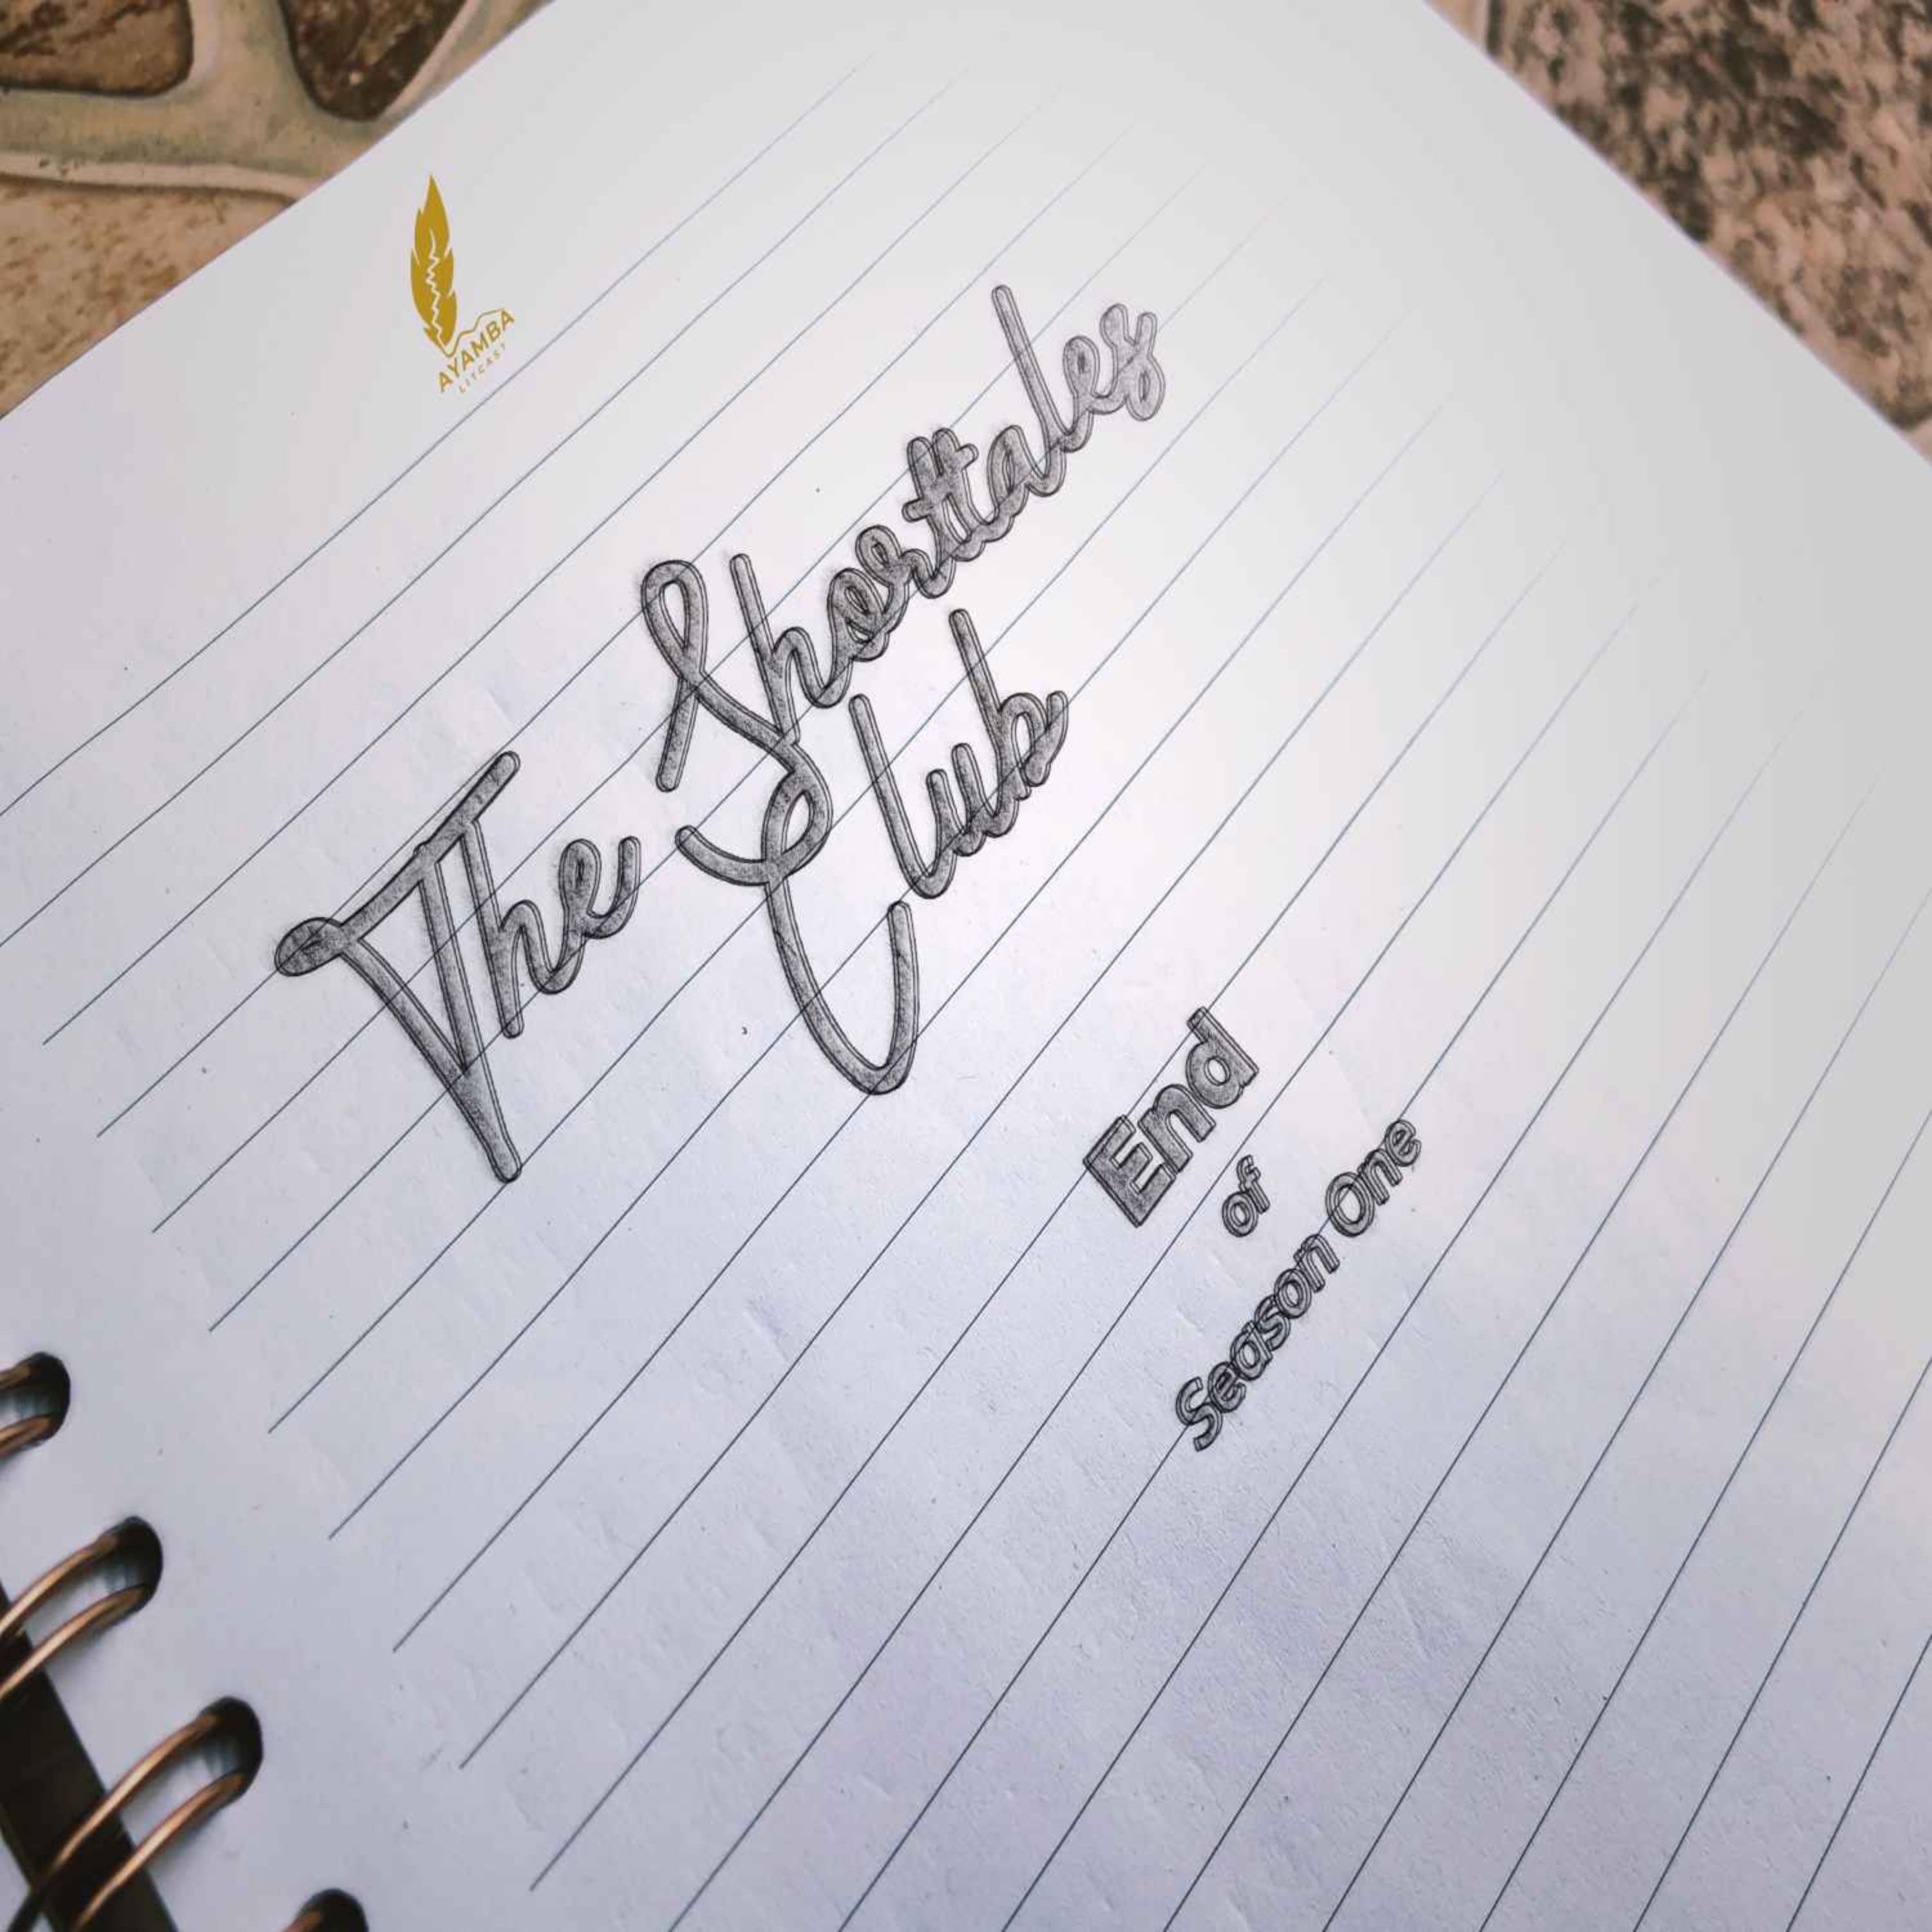 AYAMBA
LITCAST
The Shorttales
Club
End
of
Season One